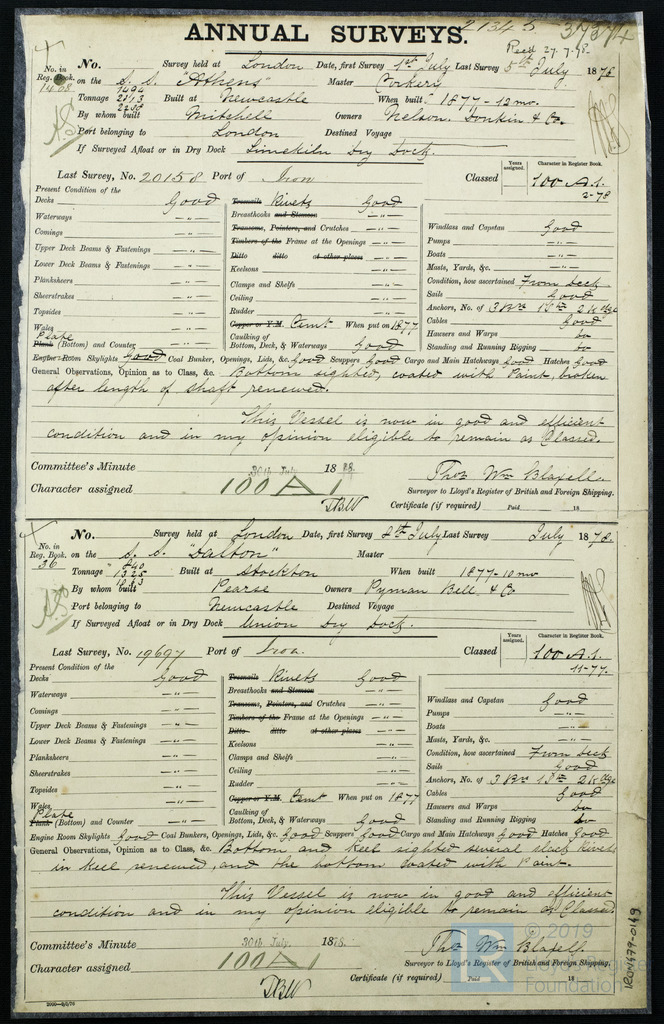 ANNUAL SURVEYS.
Recd 27.7.78.
No. in Reg. Book. 1408
No. Survey held at London Date, first Survey 1st July Last Survey 5th July 1878
on the S.S. "Athens" Master Corkery
Tonnage 1494 Built at Newcastle When built 1877-12 mo.
By whom built Mitchell Owners Nelson, Donkin & Co.
Port belonging to London Destined Voyage
If Surveyed Afloat or in Dry Dock Limekiln Dry Dock.
Last Survey, No. 20158 Port of Iron Classed Years assigned. Character in Register Book. 100 A.1. 2-78
Present Condition of the
Decks Good Treenails Rivets Good
Waterways -"- Breasthooks and Stemson -"- Windlass and Capstan Good
Comings -"- Transoms, Pointers, and Crutches -"- Pumps -"-
Upper Deck Beams & Fastenings -"- Timbers of the Frame at the Openings -"- Boats -"-
Lower Deck Beams & Fastenings -"- Ditto ditto at other places Masts, Yards, &c. -"-
Planksheers -"- Keelsons -"- Condition, how ascertained From Deck
Sheerstrakes -"- Clamps and Shelfs -"- Sails Good
Topsides -"- Ceiling -"- Anchors, No. of 3 Br 1 Stm 2 Kedge
Wales -"- Rudder -"- Cables Good
Plate Plank (Bottom) and Counter -"- Copper or Y.M. Cemt When put on 1877 Hawsers and Warps Do
Caulking of Bottom, Deck, & Waterways Good Standing and Running Rigging Do
Engine Room Skylights Good Coal Bunker, Openings, Lids, &c. Good Scuppers Good Cargo and Main Hatchways Good Hatches Good
General Observations, Opinion as to Class, &c. Bottom sighted, coated with Paint, broken
after length of shaft renewed.
This Vessel is now in good and efficient
condition and in my opinion eligible to remain as Classed.
Committee's Minute 30th July 1878. Thos Wm Blaxell.
Character assigned 100 A 1 Surveyor to Lloyd's Register of British and Foreign Shipping.
TBW Certificate (if required) Paid 18
No. in Reg. Book. 36
No. Survey held at London Date, first Survey 2th July Last Survey July 1878.
on the S.S. "Dalton" Master
Tonnage Built at Stockton When built 1877-10 mo
By whom built Pearse Owners Pyman Bell & Co
Port belonging to Newcastle Destined Voyage
If Surveyed Afloat or in Dry Dock Union Dry Dock.
Last Survey, No. 19697 Port of Iron. Classed Years assigned. Character in Register Book. 100 A.1. 11-77.
Present Condition of the
Decks Good Treenails Rivets Good
Waterways -"- Breasthooks and Stemson -"- Windlass and Capstan Good
Comings -"- Transoms, Pointers, and Crutches -"- Pumps -"-
Upper Deck Beams & Fastenings -"- Timbers of the Frame at the Openings -"- Boats -"-
Lower Deck Beams & Fastenings -"- Ditto ditto at other places Masts, Yards, &c. -"-
Planksheers -"- Keelsons -"- Condition, how ascertained From Deck
Sheerstrakes -"- Clamps and Shelfs -"- Sails Good
Topsides -"- Ceiling -"- Anchors, No. of 3 Br 1 Stm 2 Kedge
Wales -"- Rudder -"- Cables Good
Plate Plank (Bottom) and Counter -"- Copper or Y.M. Cemt When put on 1877 Hawsers and Warps Do
Caulking of Bottom, Deck, & Waterways Good Standing and Running Rigging Do
Engine Room Skylights Good Coal Bunkers, Openings, Lids, &c. Good Scuppers Good Cargo and Main Hatchways Good Hatches Good
General Observations, Opinion as to Class, &c. Bottom and Keel sighted several slack Rivets
in keel renewed, and the bottom coated with Paint.
This Vessel is now in good and efficient
condition and in my opinion eligible to remain as Classed.
Committee's Minute 30th July. 1878. Thos Wm Blaxell.
Character assigned 100 A 1 Surveyor to Lloyd's Register of British and Foreign Shipping.
TBW Certificate (if required) Paid 18
© 2019
Foundation
IRON679-0149